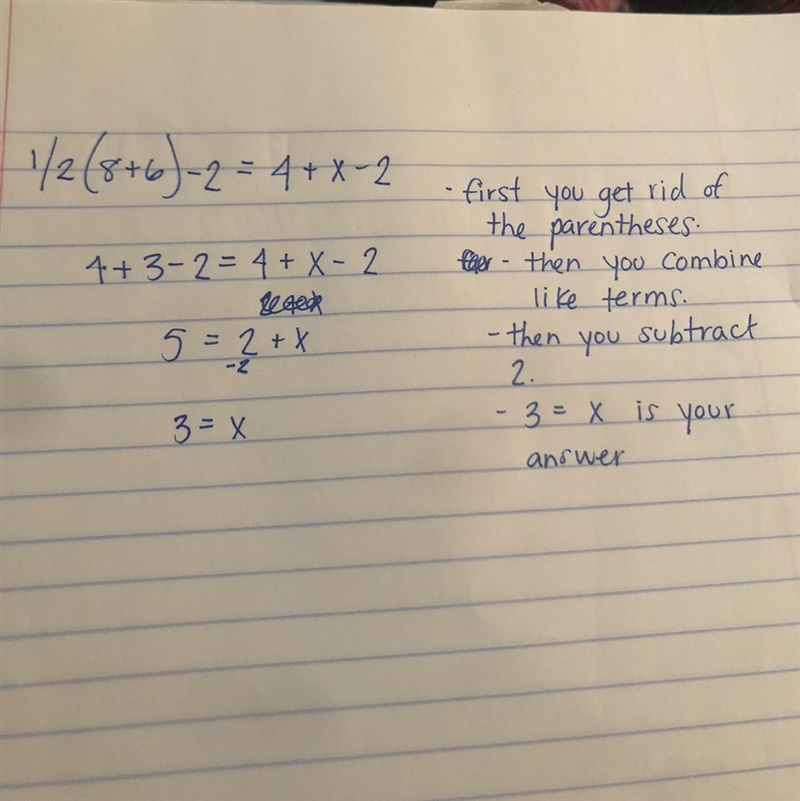 1/2(8+6)-2 = 4+x-2
4+3-2 = 4+x-2
5 = 2+x
-2
3 = x
- first you get rid of
the parentheses.
- then you combine
like terms.
- then you subtract
2.
- 3 = x is your
answer